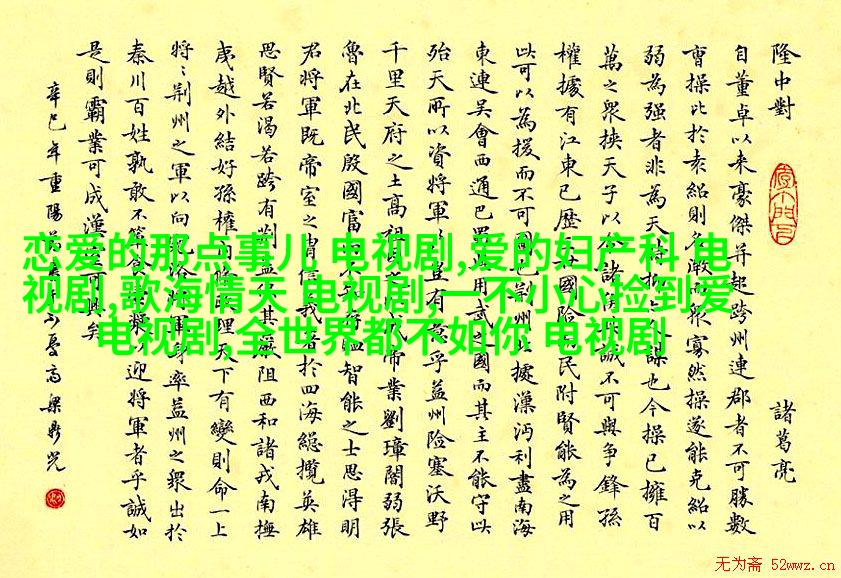 隆中對
諸葛亮
自董卓以来豪傑并起跨州連郡者不可勝數
曹操比於袁紹則名微而眾寡然操遂能克紹以
弱為强者非為天時抑人謀也今操已擁百
萬之衆挟天子以諸誠不可與争鋒孫
權據有江東已歷國險民附賢能為之用
此可以為援而不可圖據漢沔利盡南海
東連吳會西通巴用武之國而其主不能守此
殆天所以資將軍豈有乎益州險塞沃野
千里天府之土高祖帝業劉璋闇弱張
魯在北民殷國富智能之士思得明
君將軍既帝室之胄信於四海總攬英雄
思賢若渴若跨有荆益其巖阻西和諸戎南撫
夷越外結好孫權理天下有變則命一上
將々荆州之軍以向洛軍率益州之眾出於
秦川百姓孰敢不迎將軍者乎誠如
是則霸業可成漢興矣
辛巳年重陽
恋爱的那点事儿 电视剧,爱的妇产科 电
视剧,歌海情天 电视剧,一不小心捡到爱
电视剧,全世界都不如你 电视剧
无为斋 52wwz.cn